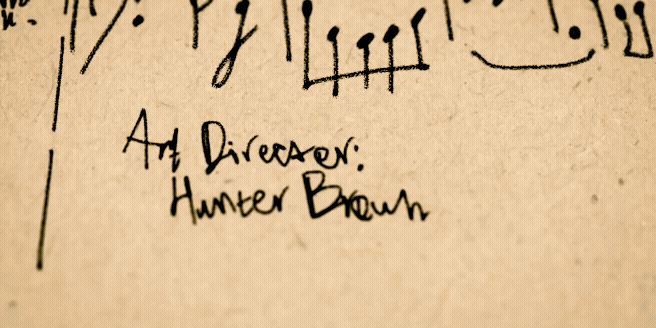 Art Director:
Hunter Brown